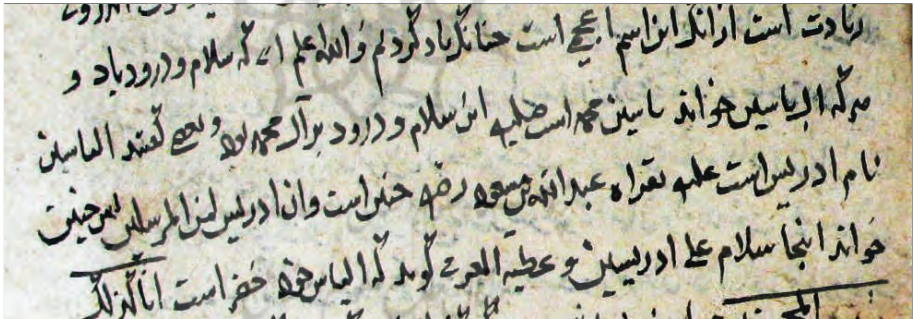 زیادت است ازانک این اسم اعجمی است چنانک یاد کردیم و الله اعلم ای که سلام و درود باد و
هر که ال یاسین خواند یاسین محمد است صلیه این سلام و درود بر آل محمد بود و بعضی گفتند الیاسین
نام ادریس است علیه بقراه عبدالله بن مسعود رضه چنین است وان ادریس لمن المرسلین پس چنین
خواند اینجا سلام علی ادریسین و عطیه العوفی گوید که الیاس خود خضر است انا کذلک